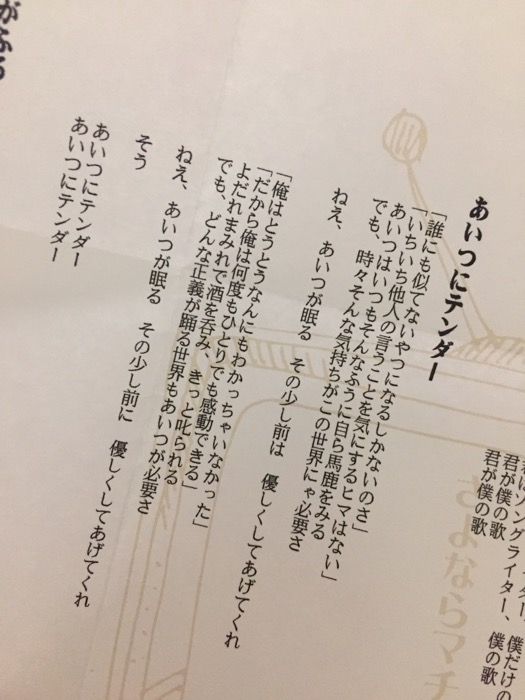 君が僕の歌
君が僕の歌
ソングライター、僕だけの
ライター、僕の歌
さよならマチ
あいつにテンダー
「誰にも似てないやつになるしかないのさ」
「いちいち他人の言うことを気にするヒマはない」
あいつはいつもそんなふうに自ら馬鹿をみる
でも、時々そんな気持ちがこの世界にゃ必要さ
ねえ、あいつが眠る その少し前は 優しくしてあげてくれ
「俺はとうとうなんにもわかっちゃいなかった」
「だから俺は何度もひとりでも感動できる」
よだれまみれで酒を呑み、きっと叱られる
でも、どんな正義が踊る世界もあいつが必要さ
ねえ、あいつが眠る その少し前に 優しくしてあげてくれ
そう
あいつにテンダー
あいつにテンダー
がふる